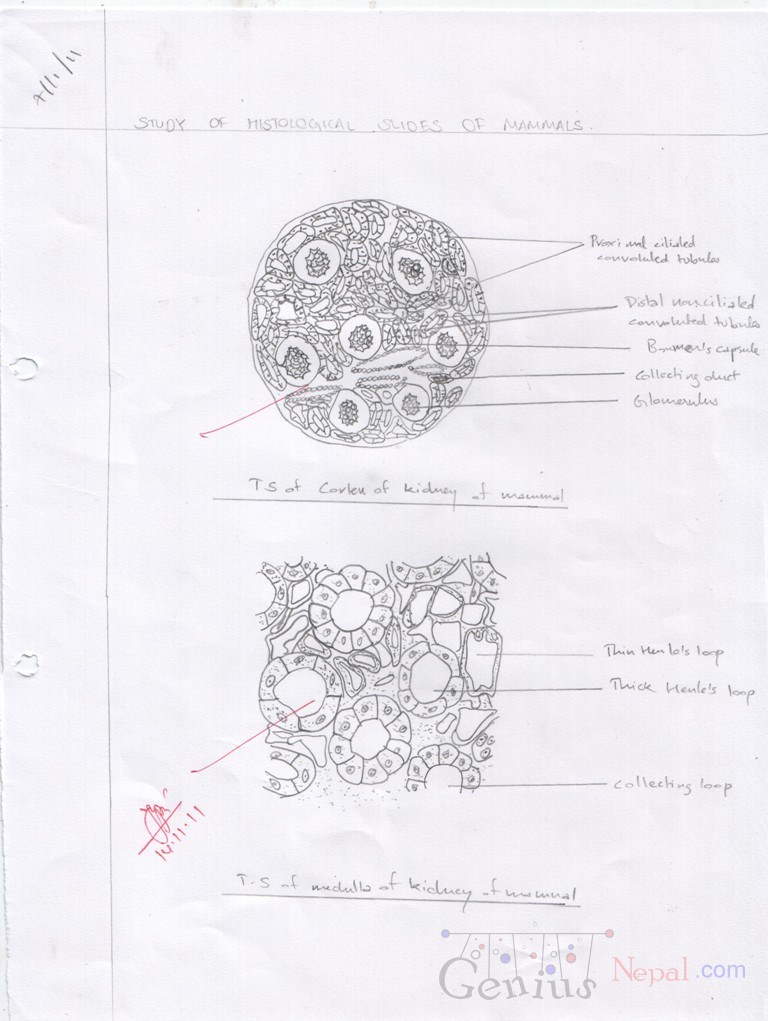 7/11/11
STUDY OF HISTOLOGICAL SLIDES OF MAMMALS.
Proximal ciliated
convoluted tubules
Distal non-ciliated
convoluted tubules
Bowmen's capsule
Collecting duct
Glomerulus
T.S of Cortex of kidney of mammal
Thin Henle's loop
Thick Henle's loop
Collecting loop
14.11.11
T.S of medulla of kidney of mammal
Genius Nepal.com